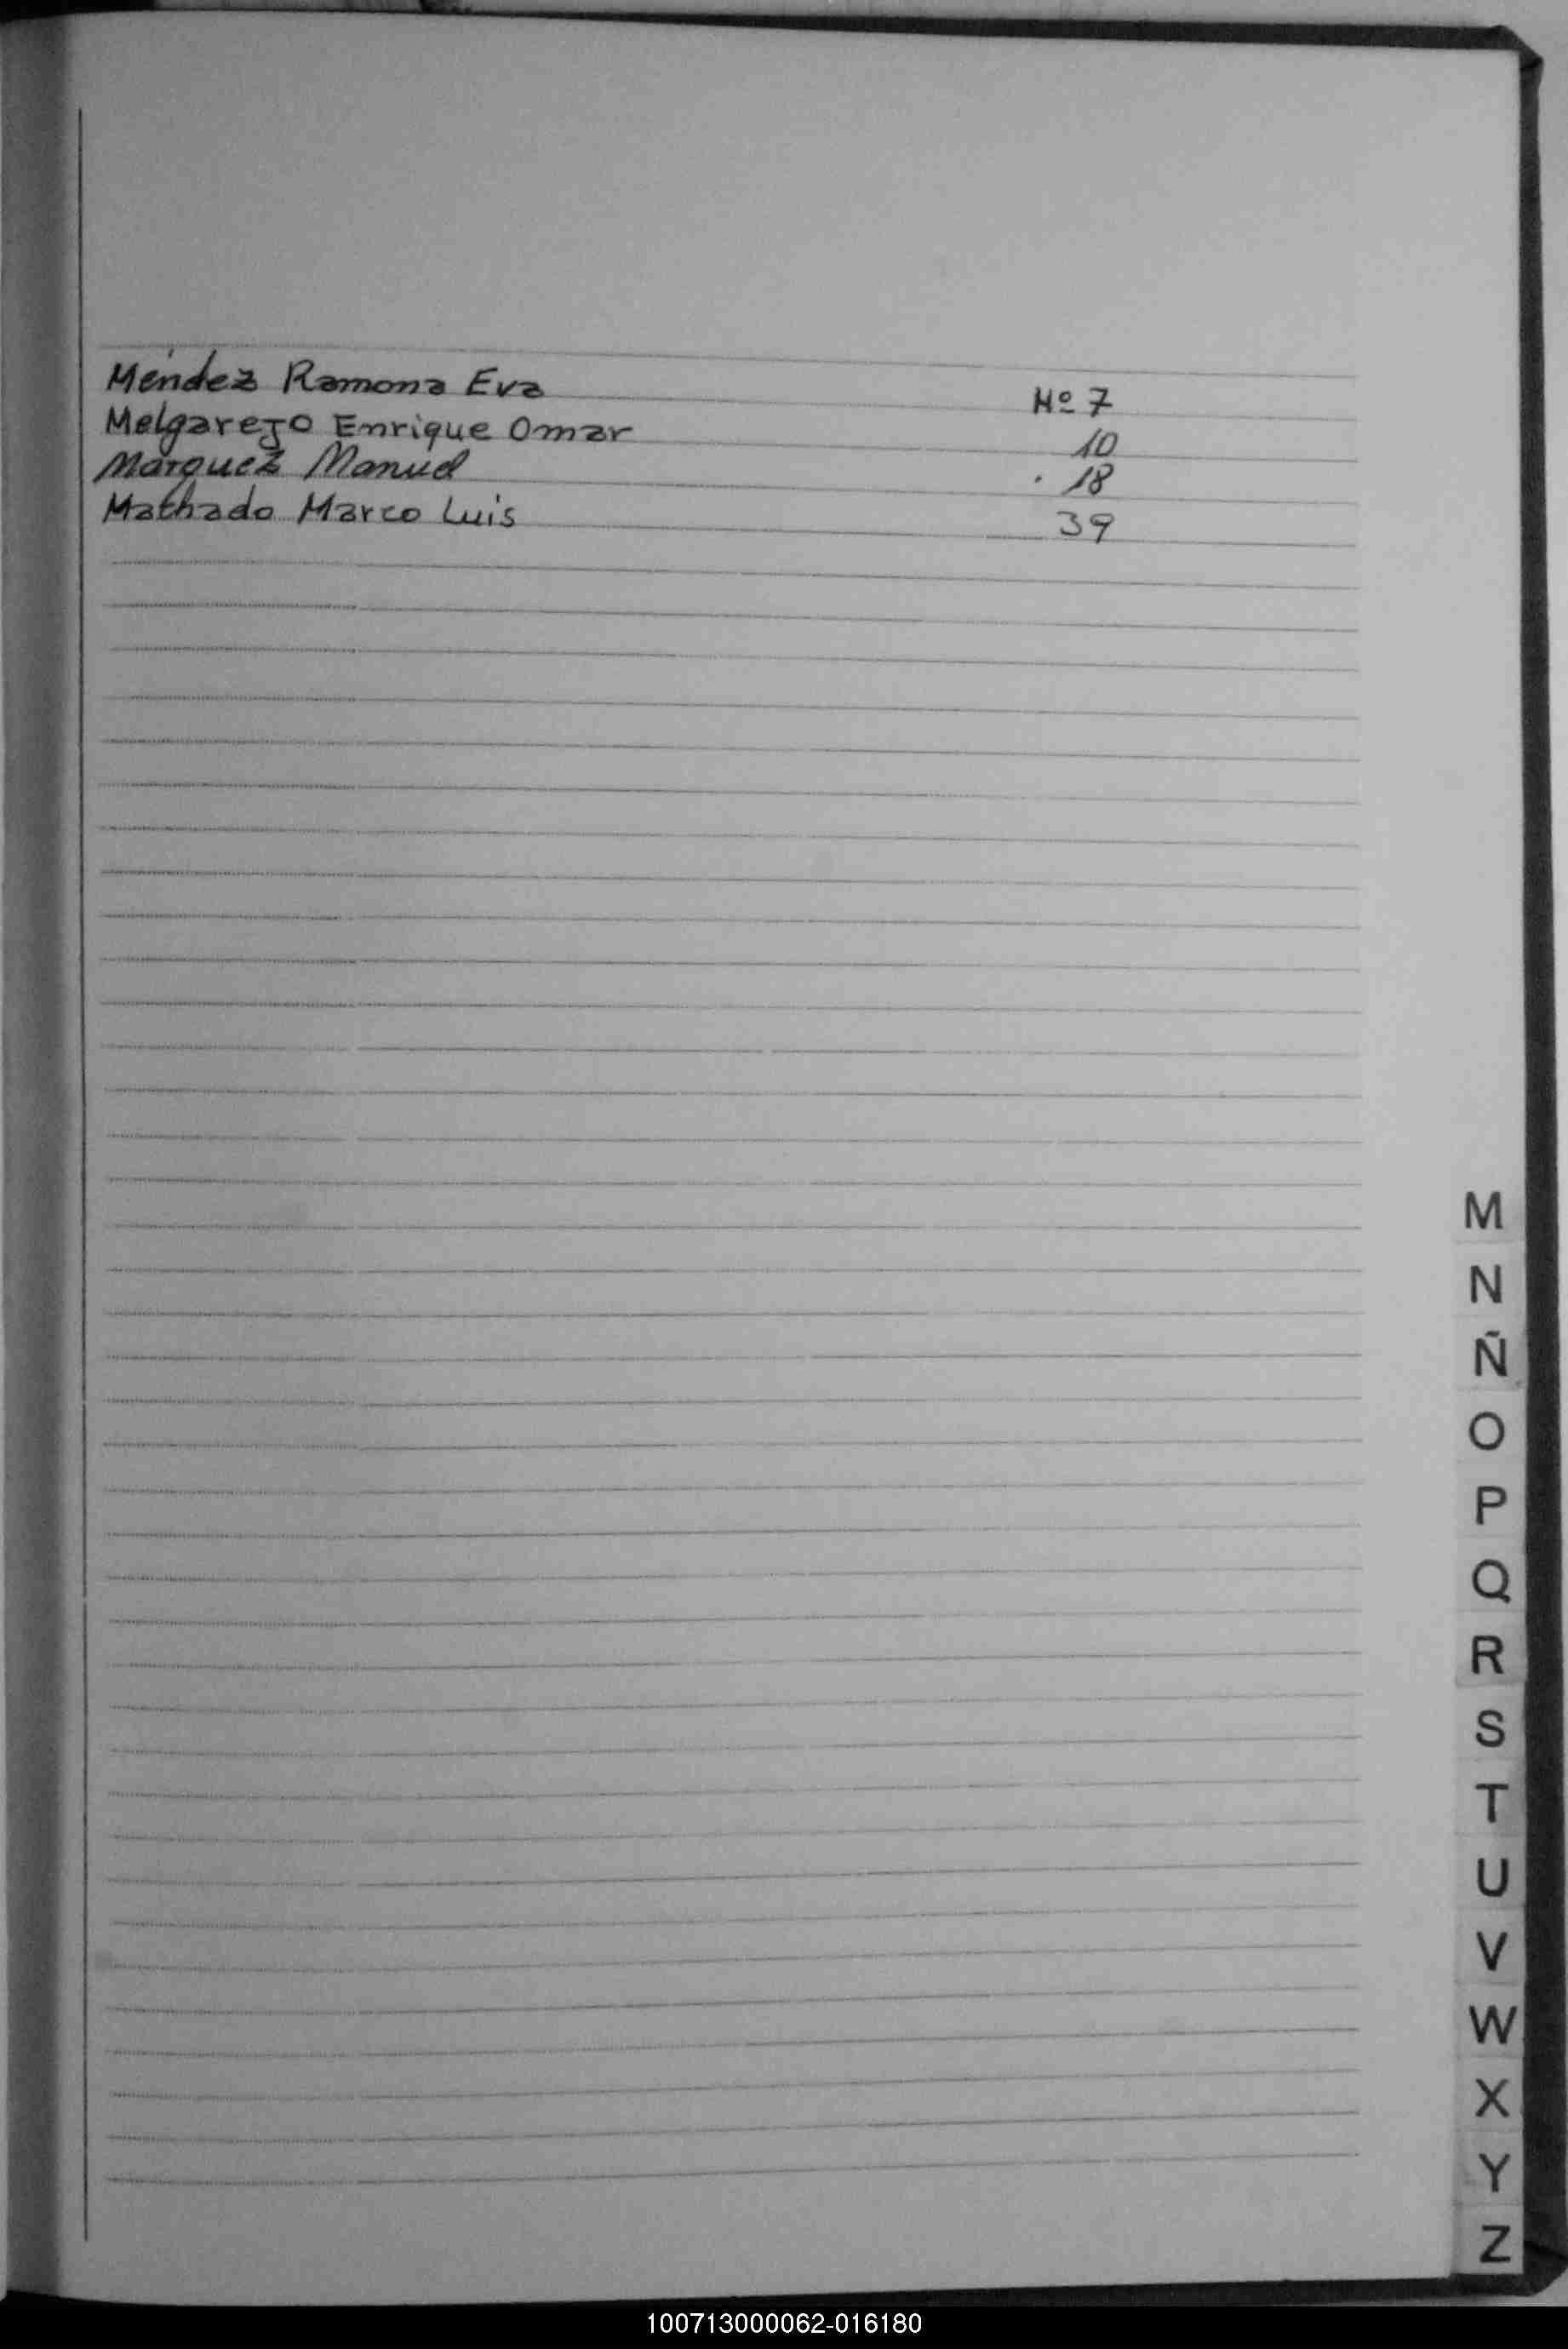 Méndez Ramona Eva Nº 7
Melgarejo Enrique Omar 10
Márquez Manuel . 18
Mathado Marco Luis 39
M
N
Ñ
O
P
Q
R
S
T
U
V
W
X
Y
Z
100713000062-016180